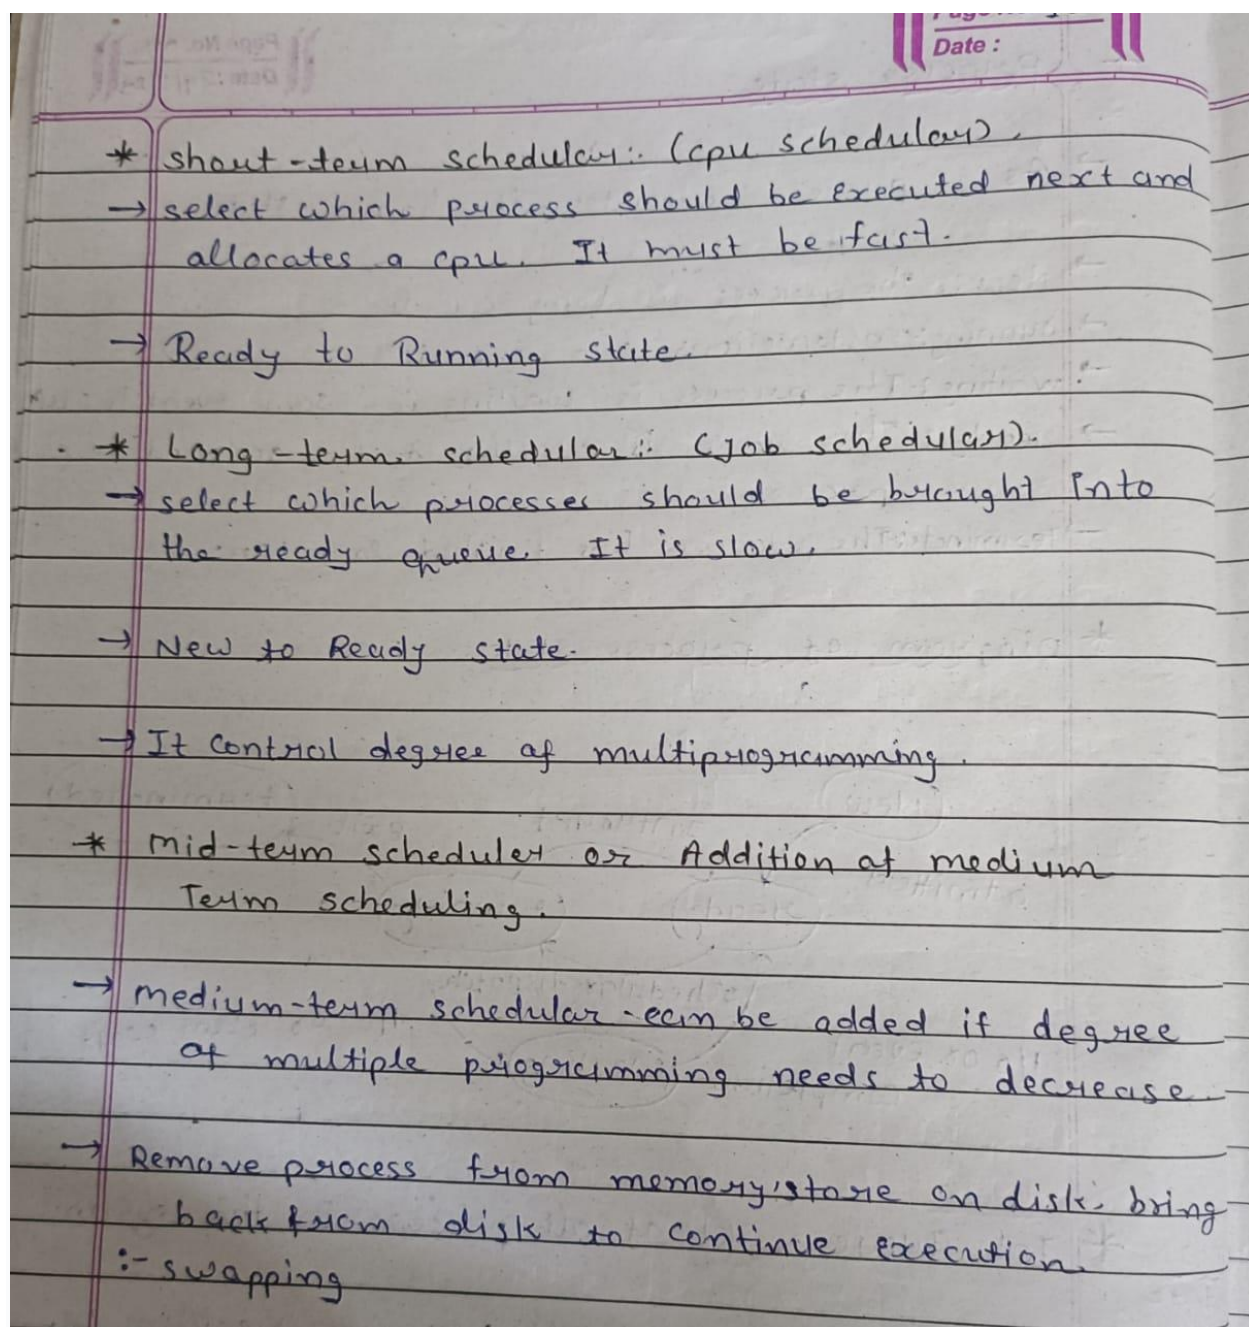 Date :
* short-term schedular:. (cpu schedular).
→ select which process should be executed next and
allocates a cpu. It must be fast.
→ Ready to Running state.
* Long-term. schedular:. (Job schedular).
→ select which processes should be brought into
the ready queue. It is slow.
→ New to Ready state.
→ It control degree of multiprogramming.
* mid-term scheduler or Addition of medium
Term scheduling.
→ medium-term schedular can be added if degree
of multiple programming needs to decrease.
→ Remove process from memory, store on disk, bring
back from disk to continue execution.
:- swapping